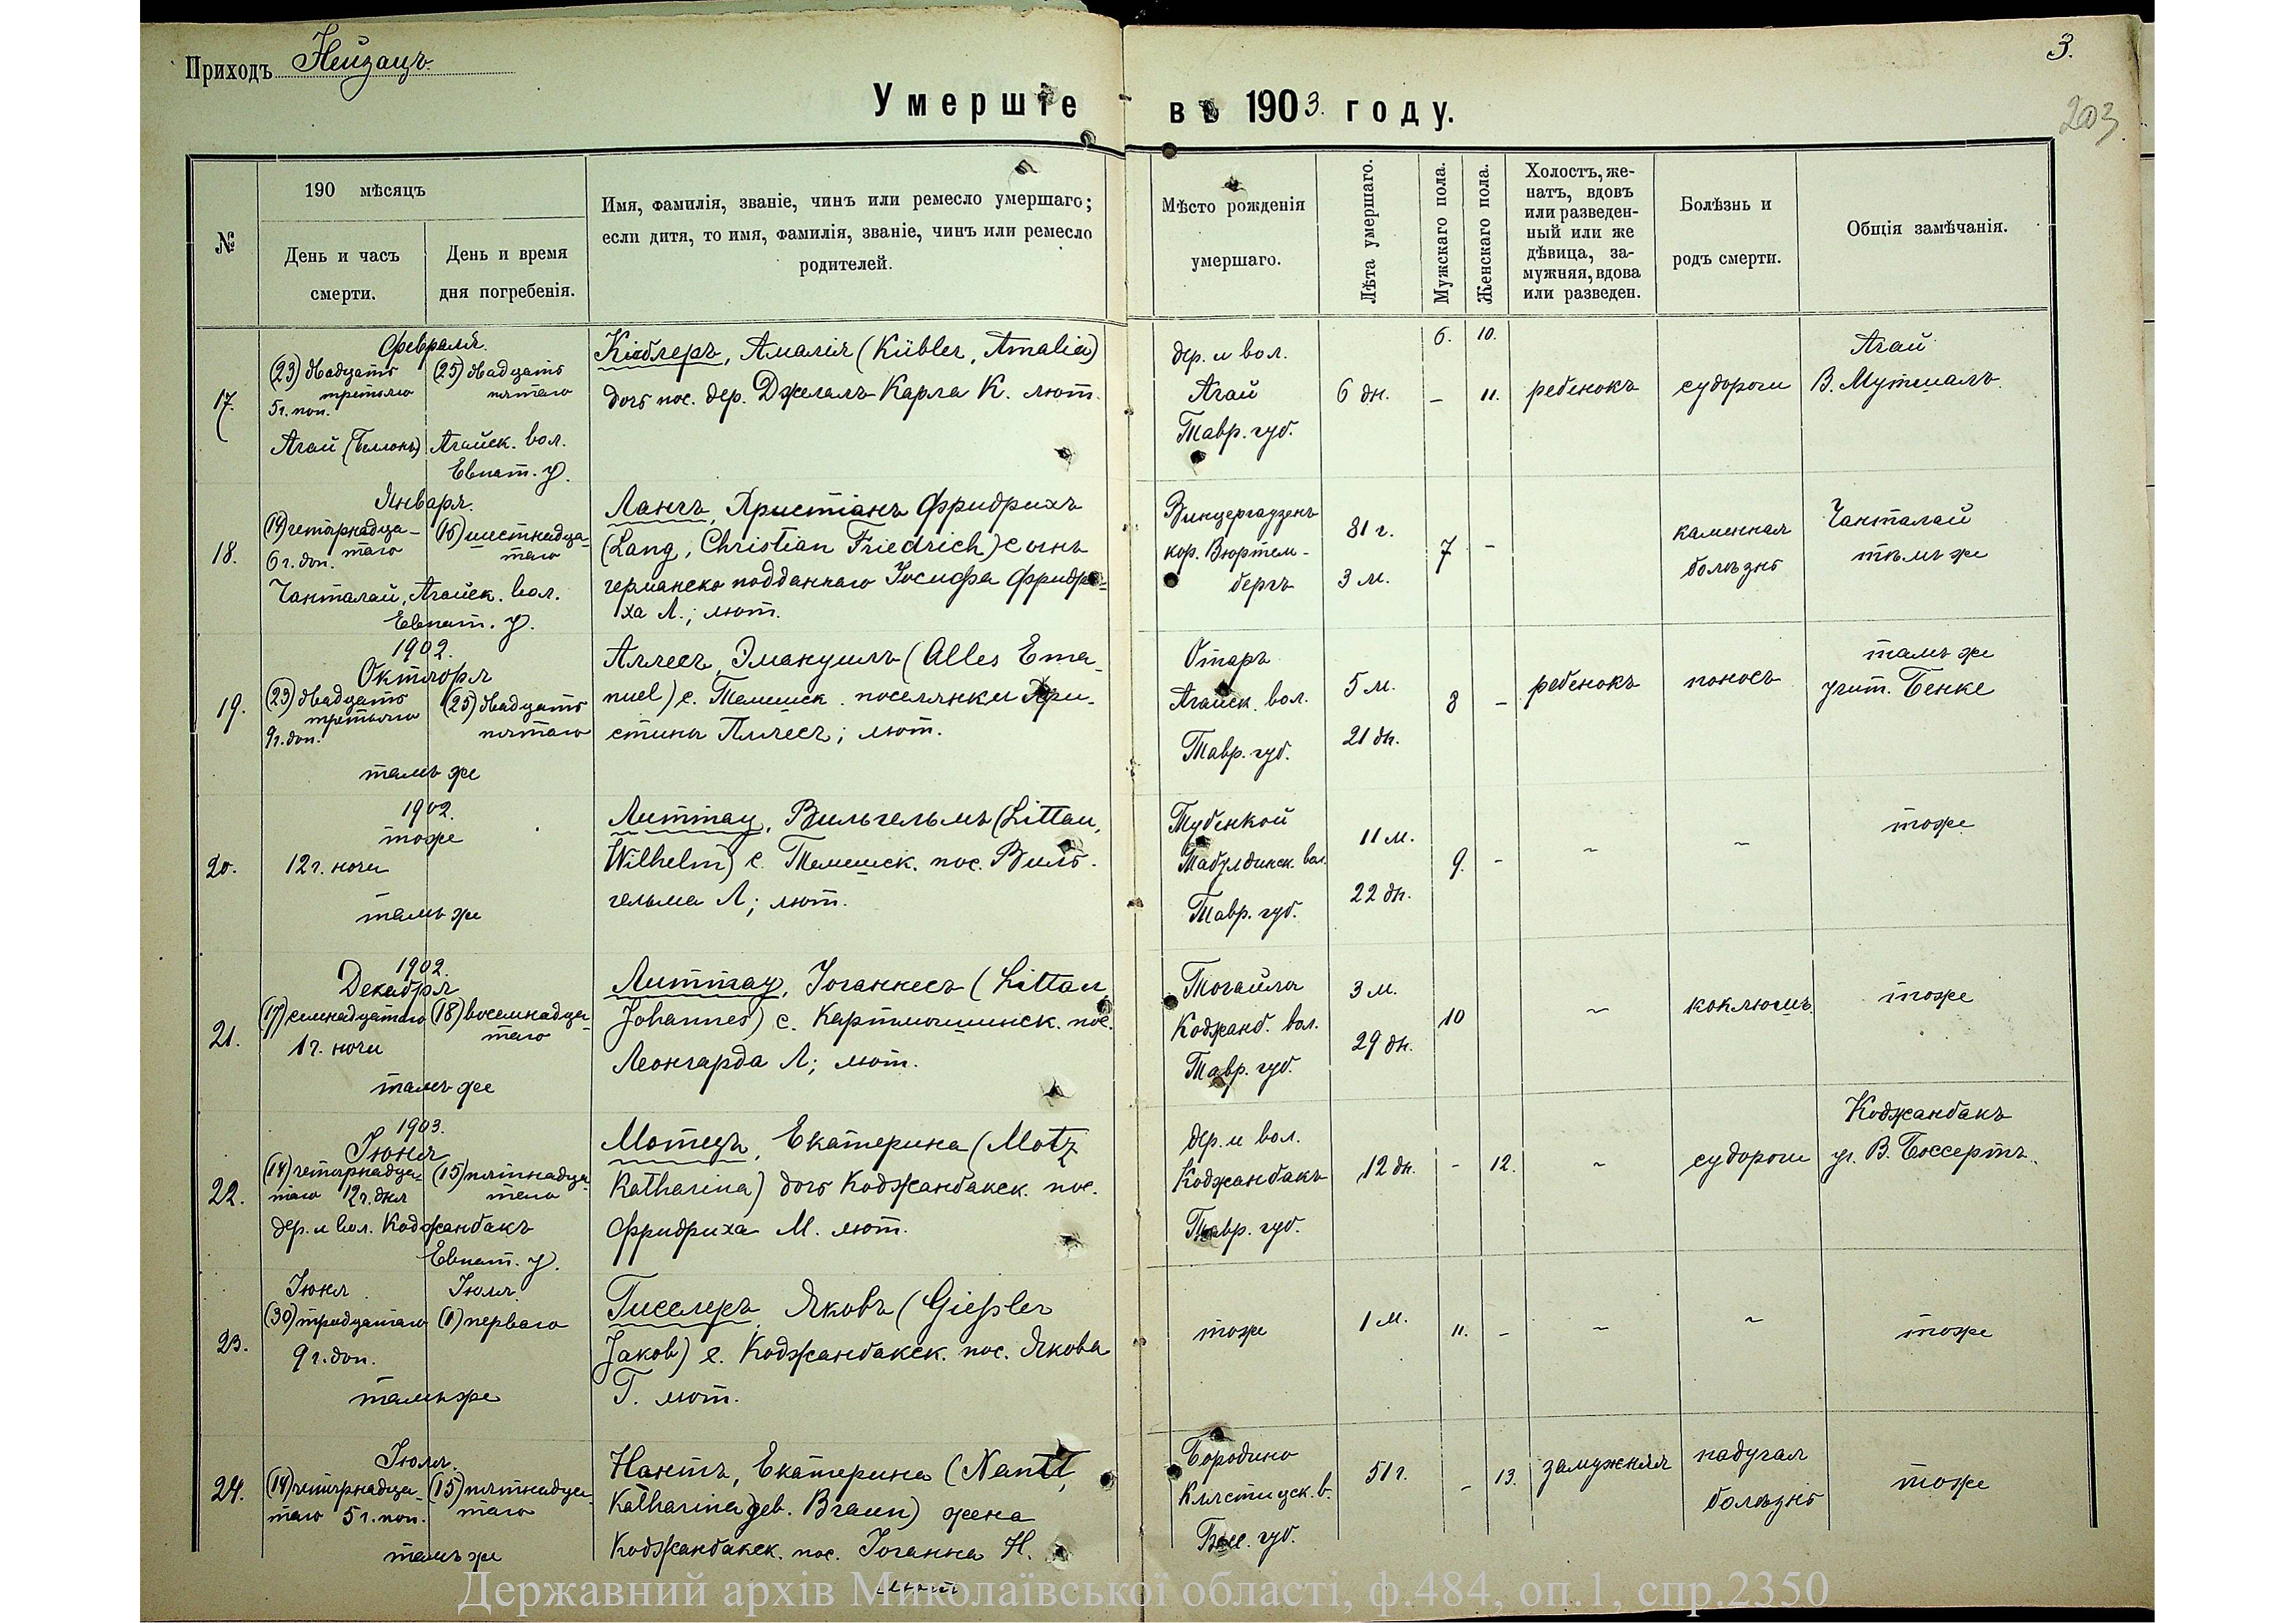 Приходъ Нейзацъ.
3.
203
Умершіе въ 1903. году.
№
190 мѣсяцъ
День и часъ смерти.
День и время дня погребенія.
Имя, фамилія, званіе, чинъ или ремесло умершаго;
если дитя, то имя, фамилія, званіе, чинъ или ремесло
родителей.
Мѣсто рожденія
умершаго.
Лѣта умершаго.
Мужскаго пола.
Женскаго пола.
Холостъ, же-
натъ, вдовъ
или разведен-
ный или же
дѣвица, за-
мужняя, вдова
или разведен.
Болѣзнь и
родъ смерти.
Общія замѣчанія.
6. 10.
17.
Февраля.
(23) двадцать третьяго
5 г. поп.
(25) двадцать пятаго
Агай Агайск. вол.
Евпат. у.
Кюблеръ, Амалія (Kübler, Amalia)
дочь пос. дер. Джелалъ Карла К. лют.
дер. и вол.
Агай
Тавр. губ.
6 дн.
–
11.
ребенокъ
судороги
Агай
В. Мутшалъ
18.
Января.
(14) четырнадца-
таго
6 г. доп.
(16) шестнадца-
таго
Чанталай, Агайск. вол.
Евпат. у.
Лангъ, Христіанъ Фридрихъ
(Lang, Christian Friedrich) сынъ
германско подданнаго Іосифа Фридри-
ха Л.; лют.
Винцергаузенъ
кор. Вюртем-
бергъ
81 г.
3 м.
7
–
каменная
болѣзнь
Чанталай
тѣмъ же
19.
1902.
Октября
(23) двадцать третьяго
9 г. доп.
(25) двадцать пятаго
тамъ же
Аллесъ, Эмануилъ (Alles Ema-
nuel) с. Темешск. поселянки Хри-
стины Аллесъ; лют.
Отаръ
Агайск. вол.
Тавр. губ.
5 м.
21 дн.
8
–
ребенокъ
поносъ
тамъ же
учит. Бенке
20.
1902.
тоже
12 г. ночи
тамъ же
Литтау, Вильгельмъ (Littau,
Wilhelm) с. Темешск. пос. Виль-
гельма Л; лют.
Тубенкой
Табулдинск. вол.
Тавр. губ.
11 м.
22 дн.
9.
–
~
~
тоже
21.
1902.
Декабря
(17) семнадцатаго
1 г. ночи
(18) восемнадца-
таго
тамъ же
Литтау, Іоганнесъ (Littau
Johannes) с. Картмышинск. пос.
Леонгарда Л; лют.
Тогайлы
Коджанб. вол.
Тавр. губ.
3 м.
29 дн.
10
~
коклюшъ.
тоже
22.
1903.
Іюня
(14) четырнадца-
таго 12 г. дня
(15) пятнадца-
таго
дер. и вол. Коджанбакъ
Евпат. у.
Мотцъ, Екатерина (Motz
Katharina) дочь Коджанбакск. пос.
Фридриха М. лют.
дер. и вол.
Коджанбакъ
Тавр. губ.
12 дн.
–
12.
~
судороги
Коджанбакъ
уч. В. Боссертъ.
23.
Іюня
(30) тридцатаго
9 г. доп.
Іюля
(1) перваго
тамъ же
Гисслеръ, Яковъ (Gießler
Jakob) с. Коджанбакск. пос. Якова
Г. лют.
тоже
1 м.
11.
–
~
~
тоже
24.
Іюля.
(14) четырнадца-
таго 5 г. поп.
(15) пятнадца-
таго
тамъ же
Нантъ, Екатерина (Nantt,
Katharina geb. Braun) жена
Коджанбакск. пос. Іоганна Н.
лют
Бородино
Клястицск. в.
Бесс. губ.
51 г.
–
13.
замужняя
падучая
болѣзнь
тоже
Державний архів Миколаївської області, ф.484, оп.1, спр.2350